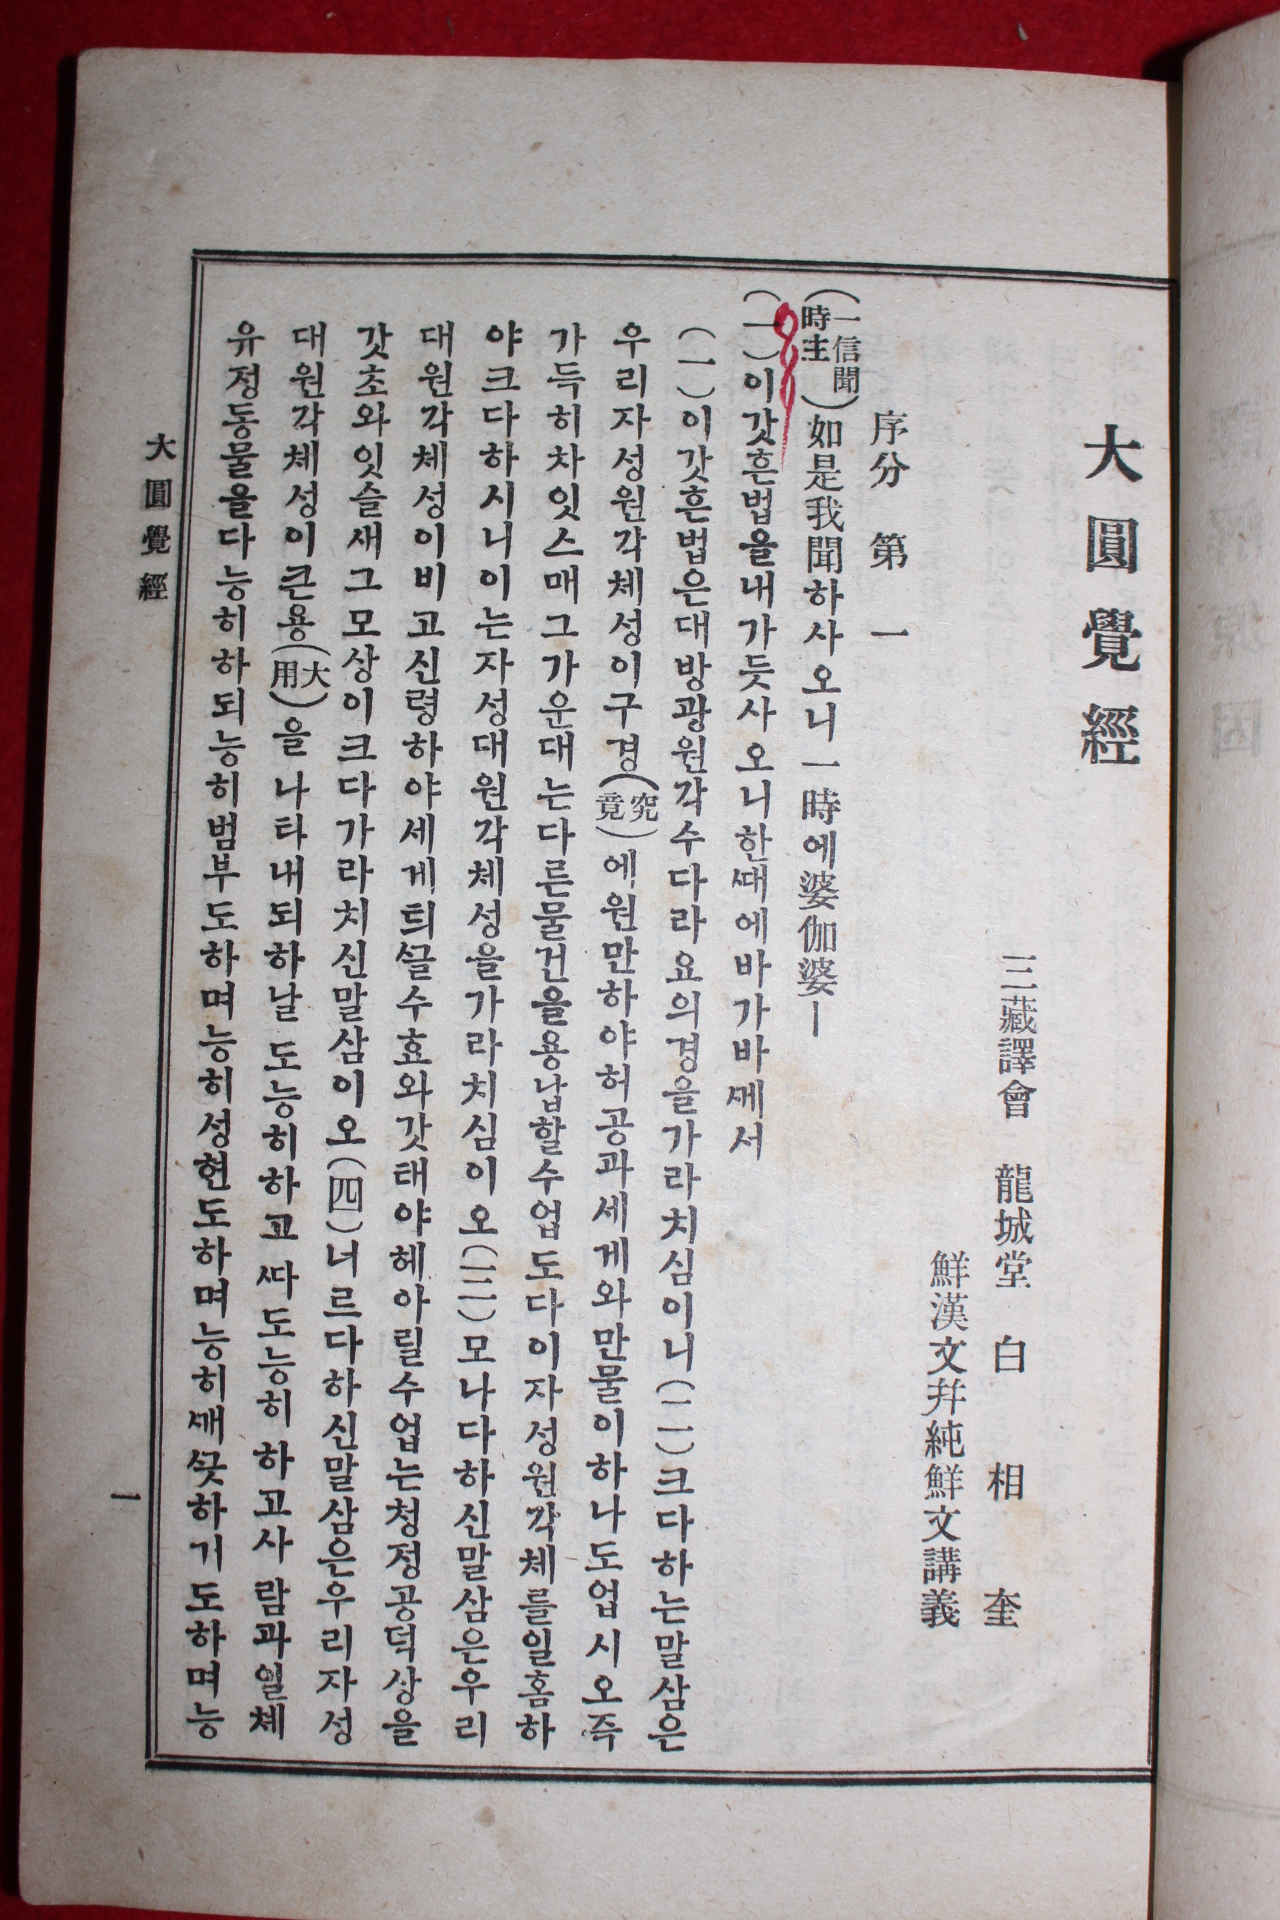 大圓覺經
三藏譯會 龍城堂 白相奎
鮮漢文幷純鮮文講義
序分第一
(一信聞時主)如是我聞하사오니一時에婆伽婆ㅣ
(一)이갓흔법을내가듯사오니한때에바가바께서
(一)이갓흔법은대방광원각수다라요의경을가라치심이니(二)크다하는말삼은
우리자성원각체성이구경(究竟)에원만하야허공과세게와만물이하나도업시오즉
가득히차잇스매그가운대는다른물건을용납할수업도다이자성원각체를일홈하
야크다하시니이는자성대원각체성을가라치심이오(三)모나다하신말삼은우리
대원각체성이비고신령하야세게틔끌수효와갓태야헤아릴수업는청정공덕상을
갓초와잇슬새그모상이크다가라치신말삼이오(四)너르다하신말삼은우리자성
대원각체성이큰용(大用)을나타내되하날도능히하고따도능히하고사람과일체
유정동물을다능히하되능히범부도하며능히성현도하며능히깨끗하기도하며능
大圓覺經
一